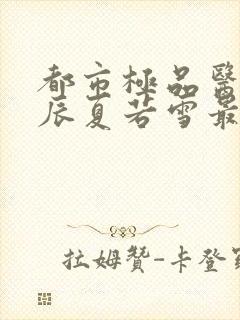 都市極品醫
辰夏若雪最
拉姆贊-卡登